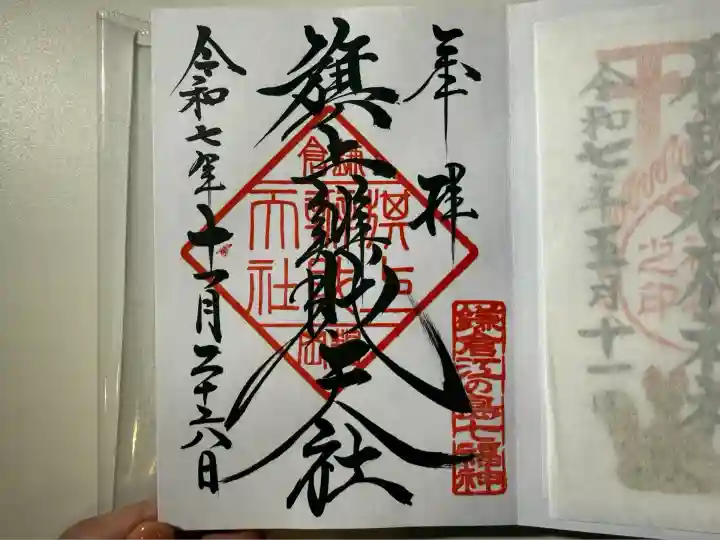 奉拝
鎌倉江の島七福神
旗上辨財天社
鎌倉
旗上
辨財
天社
令和七年十一月二十六日
令和七年五月十一